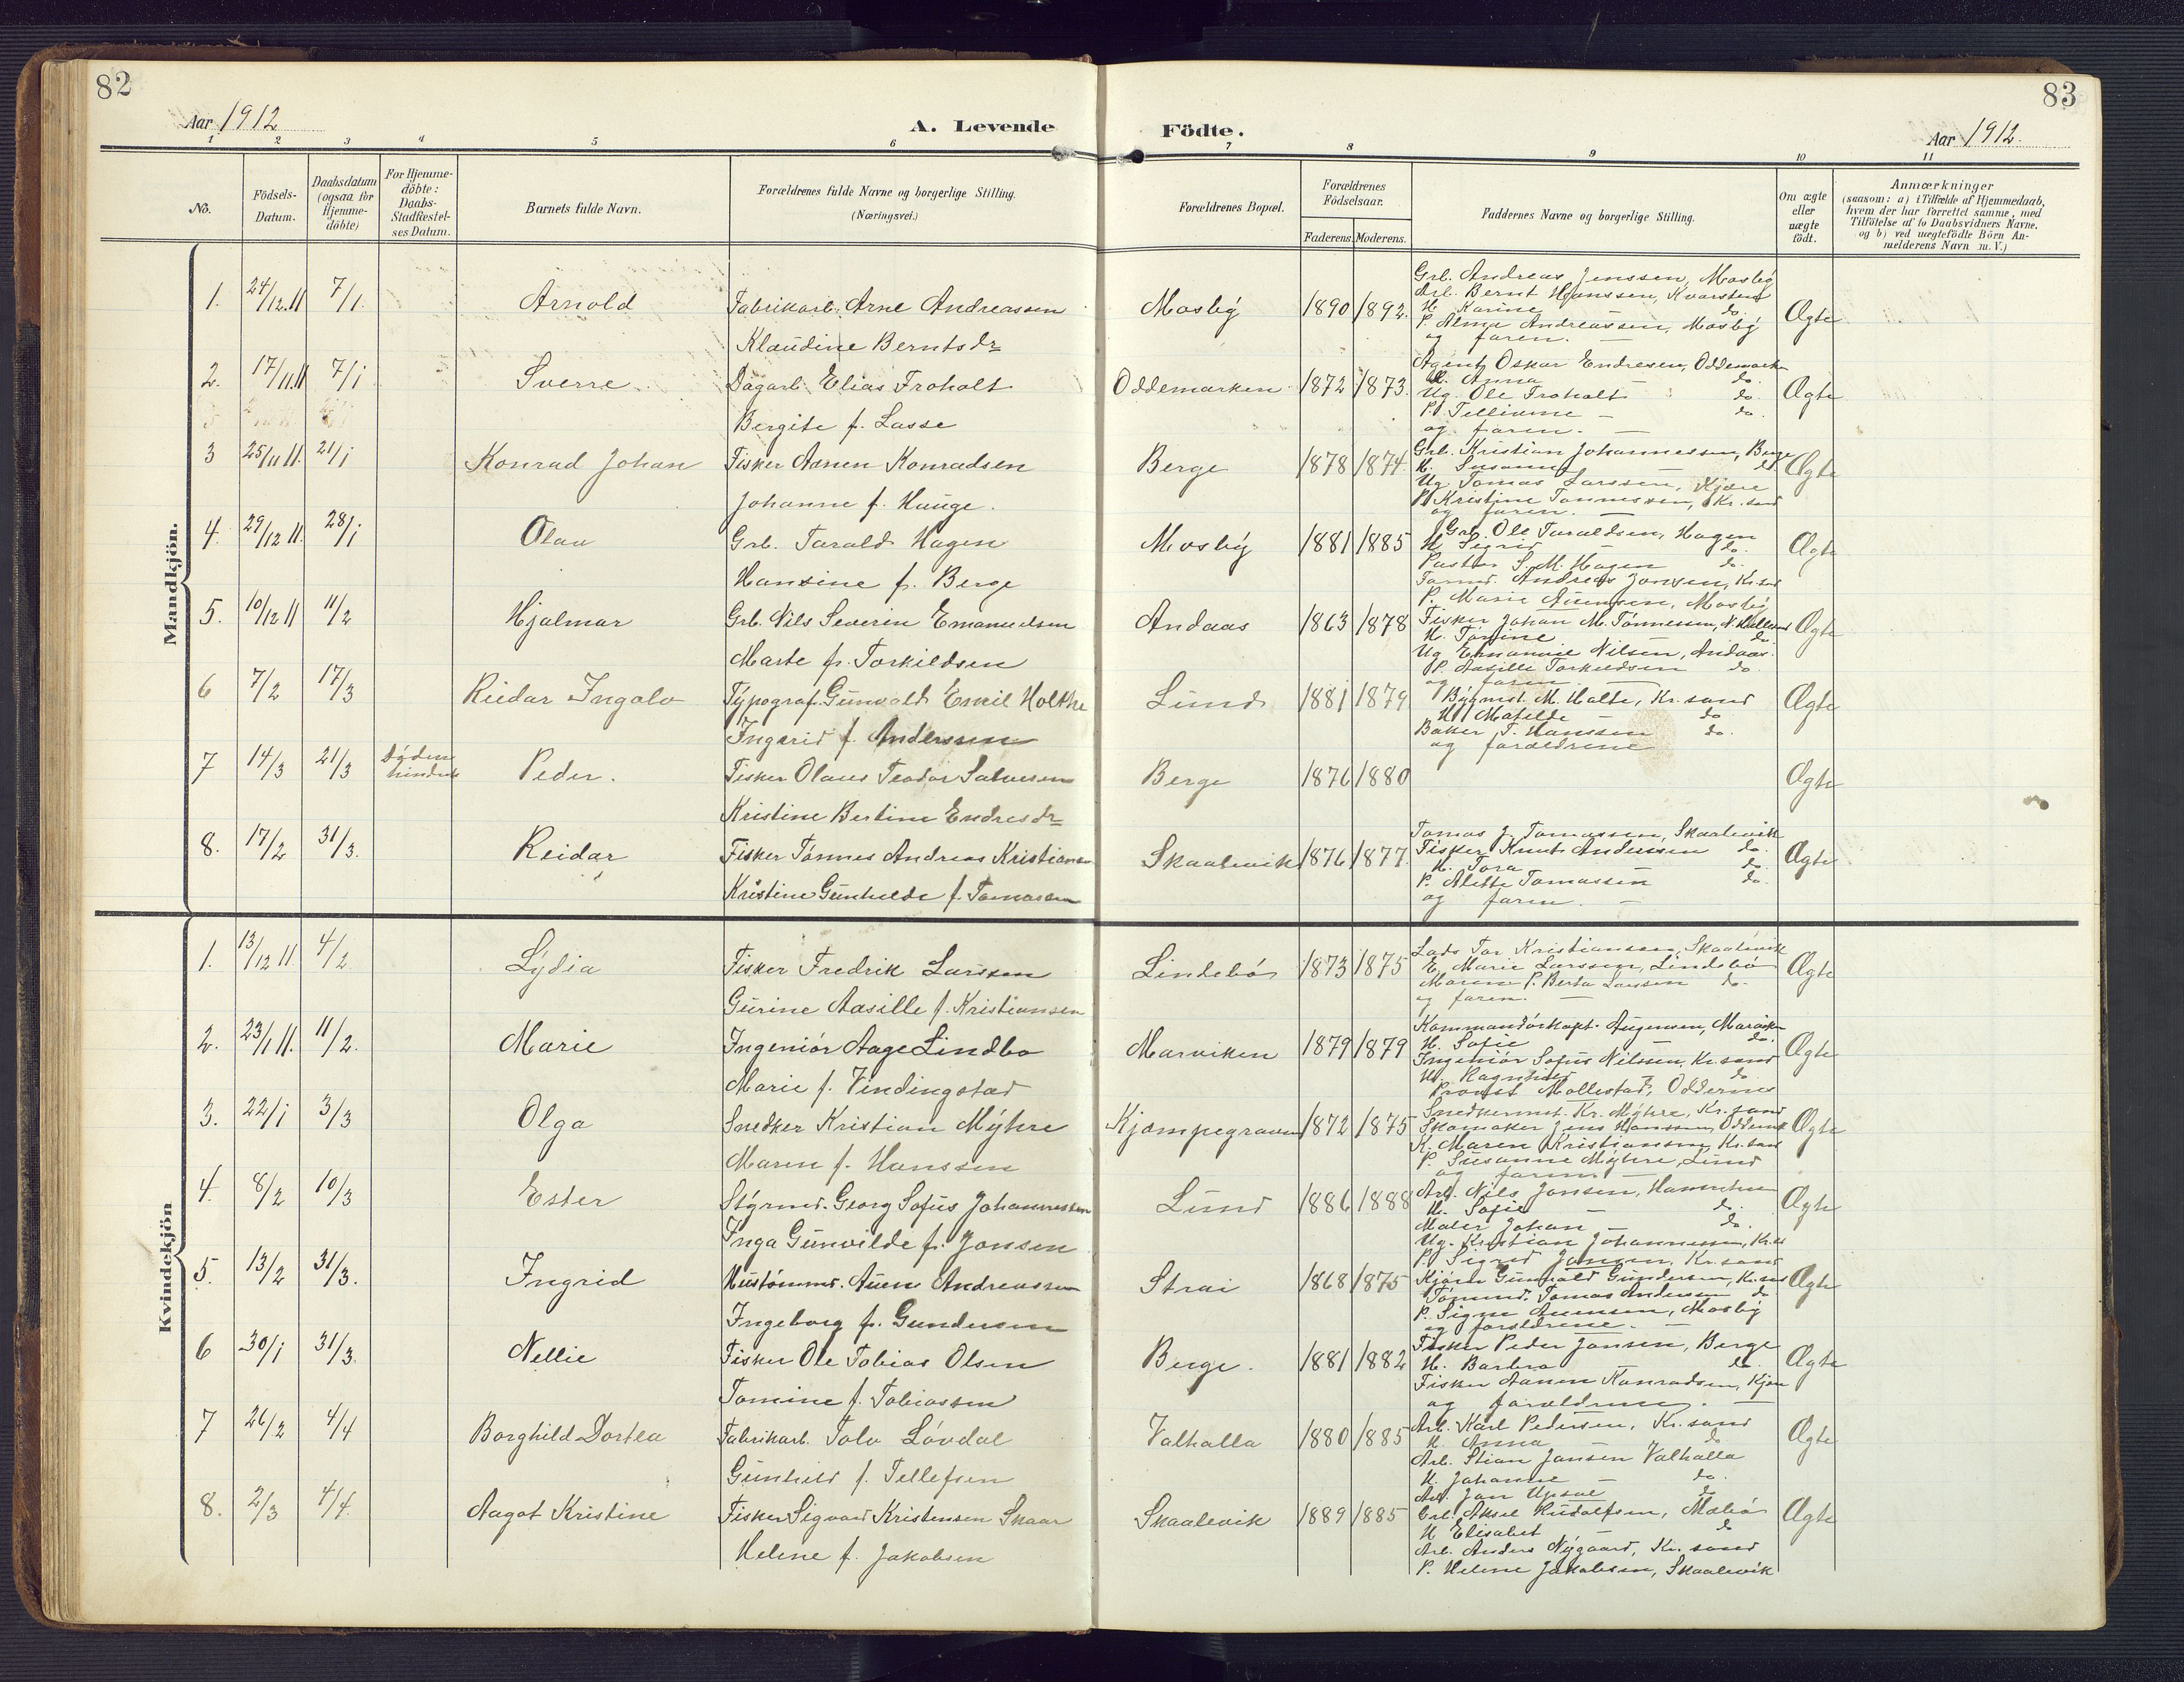 82
Aar 1912
A. Levende
1 2 3 4 5 6
No.
Födsels-Datum.
Daabsdatum (ogsaa for Hjemme-döbte)
For Hjemme-döbte: Daabs-Stadfestel-ses Datum.
Barnets fulde Navn.
Forældrenes fulde Navne og borgerlige Stilling. (Næringsvei.)
Mandkjön.
1. 24/12.11 7/1. Arnold Fabrikarb. Arne Andreassen
Klaudine Berntsdr
2. 17/11.11 7/1 Sverre Dagarb. Elias Froholt
Bergite f. Lasse
3 25/11 11. 21/1 Konrad Johan Fisker Aanen Konradsen
Johanne f. Hauge.
4. 29/12 11. 28/1 Olav Grb. Tarald Hagen
Hansine f. Berge
5. 10/12 11 11/2 Hjalmar Grb. Nils Severin Emanuelsen
Marte f. Torkildsen
6 7/2 17/3 Riedar Ingolv Typograf. Gunvald Emil Holthe
Ingerid f. Anderssen
7 14/3 21/3 Döden hindret Peder. Fisker Olaus Teodor Salvesen
Kristine Bertine Endresdr
8. 17/2 31/3. Reidar Fisker Tönnes Andreas Kristiansen
Kristine Gunhilde f. Tomassen
Kvindekjön
1. 13/12 11. 4/2 Lydia Fisker Fredrik Larssen
Gurine Aasille f. Kristiansen
2. 23/1 11. 11/2. Marie Ingeniör Aage Lindbo
Marie f. Vindingstad
3. 22/1 3/3 Olga Snedker Kristian Myhre
Maren f. Hanssen
4. 8/2 10/3 Ester Styrmd. Georg Sofus Johannessen
Inga Gunvilde f. Jonsen
5. 13/2 31/3. Ingrid Hustömmd. Auen Andreassen
Ingeborg f. Gundersen
6 30/1 31/3. Nellie Fisker Ole Tobias Olsen
Tomine f. Tobiassen
7 26/2 4/4 Borghild Dortea Fabrikarb. Tolv Lövdal
Gunhild f. Tellefsen
8. 2/3 4/4. Aagot Kristine Fisker Sigvard Kristensen Skaar
Helene f. Jakobsen
83
Födte.
Aar 1912.
7 8 9 10 11
Forældrenes Bopæl.
Forældrenes Födselsaar.
Faderens. Moderens.
Faddernes Navne og borgerlige Stilling.
Om ægte eller uægte födt.
Anmærkninger
(saasom: a) i Tilfælde af Hjemmedaab,
hvem der har forrettet samme, med
Tilföielse af to Daabsvidners Navne,
og b) ved uægtefödte Börn An-
melderens Navn m. V.)
Mosby 1890 1892. Ægte
Grb. Andreas Jenssen, Mosby
Arb. Bernt Hanssen, Kvarstein
H. Karine do.
P. Alma Andreassen, Mosby
og faren.
Oddemarken 1872 1873. Ægte
Agent Oskar Endresen, Oddemark
H. Anna — do.
Ug. Ole Froholt do
P. Tellevine — do.
og faren. —
Berge 1878 1874. Ægte
Grb. Kristian Johannessen, Berge
H. Susanne do
Ug Tomas Larssen, Kjære
P. Kristine Tonnessen, Kr.sand
og faren. —
Mosby 1881 1885 Ægte
Grb. Ole Taraldsen, Hagen
H. Sigrid — do.
Pastor S. M. Hagen do.
Tømmd. Andreas Jonsen, Kr.sand
P. Marie Auensen, Mosby
Andaas 1863 1878 Ægte
Fisker Johan M. Tönnessen,
H. Tomine do.
Ug Emanuel Nilsen, Andaas.
P. Aasille Torkildsen do.
og faren. —
Lund 1881 1879 Ægte
Bygmst. M. Holte, Kr.sand
H. Matilde — do
Baker T. Hanssen do.
og forældrene
Berge 1876 1880 Ægte
Skaalevik 1876 1877. Ægte
Tomas J. Tomassen, Skaalevik
Fisker Knut Anderssen do.
H. Tora do.
P. Alette Tomassen do.
og faren. —
Lindebö 1873 1875 Ægte
Lods Tor Kristiansen, Skaalevik
E. Marie Larssen, Lindebö
P. Berta Larssen do.
og faren. —
Marviken 1879 1879 Ægte
Kommandörkapt. Augensen, Marviken
H. Sofie — do.
Ingeniör Sofus Nilssen, Kr.sand
H. Ragnhild do
Provst Mollestad, Oddernes
Kjæmpegraven 1872 1875 Ægte
Snedkermst. Kr. Myhre, Kr.sand
Skomaker Jens Hanssen, Oddernes
K. Maren Kristiansen, Kr.sand
P. Susanne Myhre, Lund
og faren —
Lund 1886 1888 Ægte
Arb. Nils Jonsen,
H. Sofie — do.
Maler Johan — do.
Ug. Kristian Johannessen, Kr.s
P. Sigrid Jansen, Kr.sand
Strai 1868 1875 Ægte
Kjörer Gunvald Gundersen, Kr.sand
Tömmd. Tomas Andersen do
P. Signe Auensen, Mosby
og forældrene. —
Berge. 1881 1882 Ægte
Fisker Peder Jansen, Berge
H. Barbra — do.
Fisker Aanen Konradsen, Kjære
og forældrene. —
Valhalla 1880 1885 Ægte
Arb. Karl Pedersen, Kr.sand
H. Anna do
Arb. Stian Jansen Valhalla
H. Johanne — do.
Arb. Jan Upsal do
Skaalevik 1889 1885 Ægte
Grb. Aksel Rudolfsen, Mæbö
H Elisabet do
Arb. Anders Nygaard, Kr.sand
P. Helene Jakobsen, Skaalevik